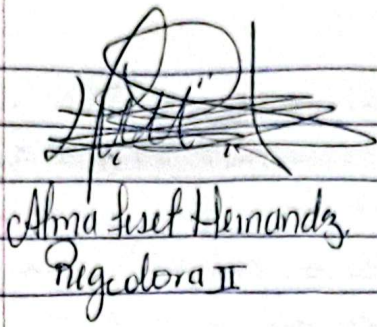 Alma Liset Hernandz.
Regidora II